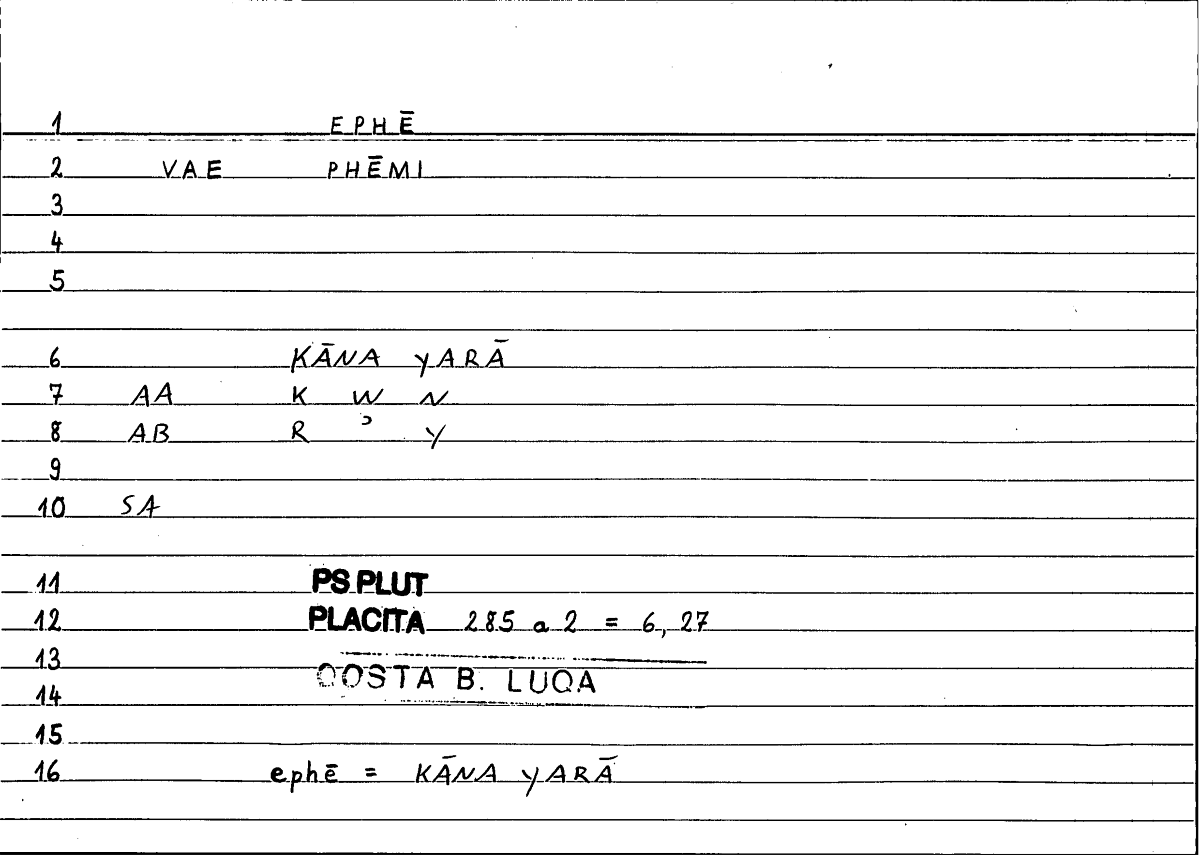 1 EPHĒ
2 VAE PHĒMI
3
4
5
6 KĀNA YARĀ
7 AA K W N
8 AB R ɔ Y
9
10 SA
11 PS PLUT
12 PLACITA 285 a 2 = 6, 27
13
QOSTA B. LUQA
14
15
16 ephē = KĀNA YARĀ